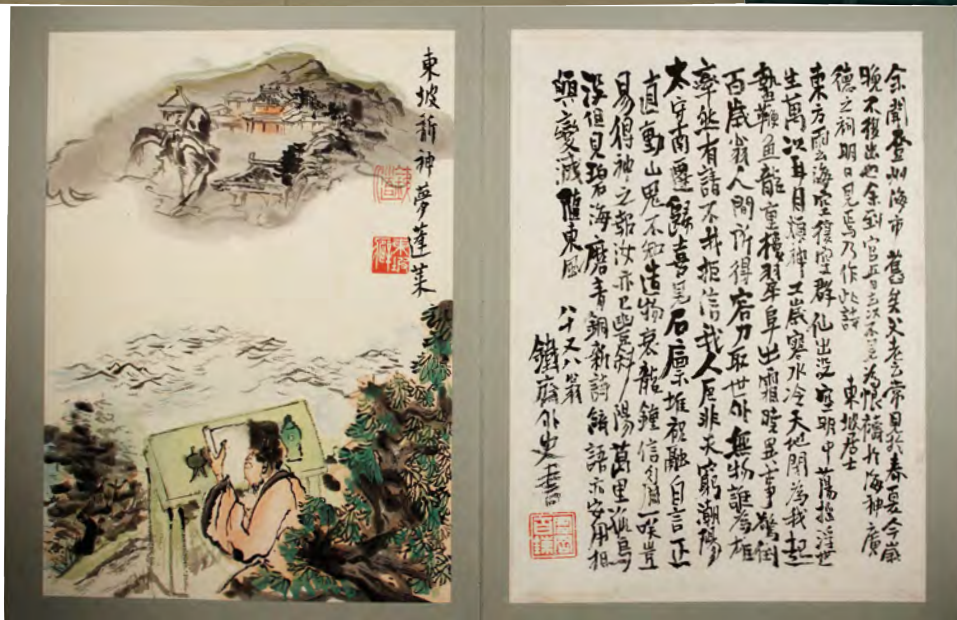 東坡祈神夢蓬萊
余聞登州海市舊矣父老云常見於春夏今歲
晚不復出也余到官五日去以不見為恨禱於海神廣
德之祠明日見焉乃作此詩 東坡居士
東方雲海空復空群仙出沒空明中蕩搖浮世
生萬以耳目煩神工歲寒水冷天地閉為我起
蟄鞭魚龍重樓翠阜出霜曉異事驚倒
百歲翁人間所得容力取世外無物誰為雄
率然有請不我拒信我人厄非天窮潮陽
太守南遷歸喜見石廩堆祝融自言正
直動山鬼不知造物哀龍鍾信眉一咲豈
易得神之報汝亦已豐斜陽萬里孤鳥
沒但見碧海磨青銅新詩綺語亦安用相
與變滅隨東風 八十又八翁
鐵齋外史書